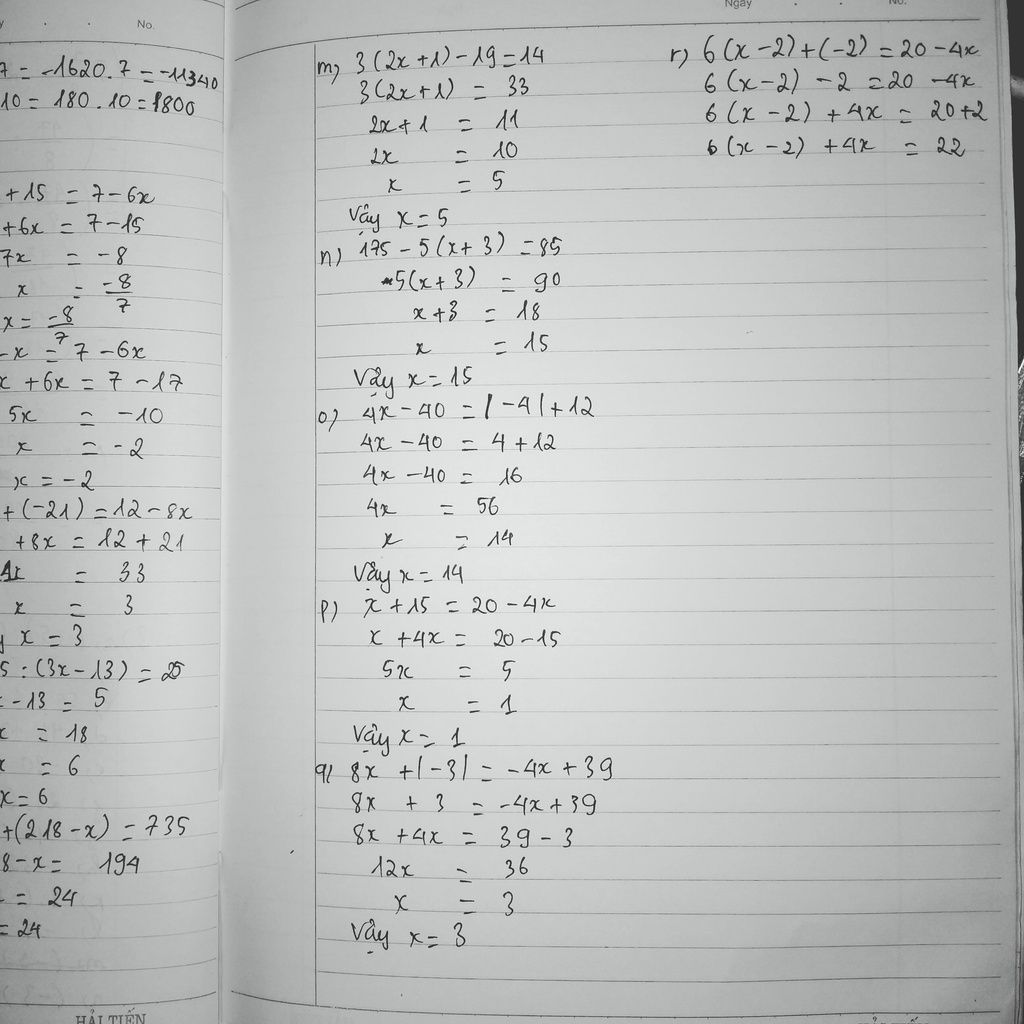 No.
7 = -1620.7 = -11340
10 = 180.10 = 1800
+ 15 = 7 - 6x
+ 6x = 7 - 15
7x = -8
x = -8/7
x = -8/7
- x = 7 - 6x
x + 6x = 7 - 17
5x = -10
x = -2
x = -2
+ (-21) = 12 - 8x
+ 8x = 12 + 21
x = 3
x = 3
: (3x - 13) = 25
- 13 = 5
= 18
= 6
x = 6
+ (218 - x) = 735
8 - x = 194
= 24
= 24
HẢI TIẾN
Ngày No.
m) 3(2x + 1) - 19 = 14
3(2x + 1) = 33
2x + 1 = 11
2x = 10
x = 5
Vậy x = 5
n) 175 - 5(x + 3) = 85
5(x + 3) = 90
x + 3 = 18
x = 15
Vậy x = 15
o) 4x - 40 = |-4| + 12
4x - 40 = 4 + 12
4x - 40 = 16
4x = 56
x = 14
Vậy x = 14
p) x + 15 = 20 - 4x
x + 4x = 20 - 15
5x = 5
x = 1
Vậy x = 1
q) 8x + |-3| = -4x + 39
8x + 3 = -4x + 39
8x + 4x = 39 - 3
12x = 36
x = 3
Vậy x = 3
r) 6(x - 2) + (-2) = 20 - 4x
6(x - 2) - 2 = 20 - 4x
6(x - 2) + 4x = 20 + 2
6(x - 2) + 4x = 22